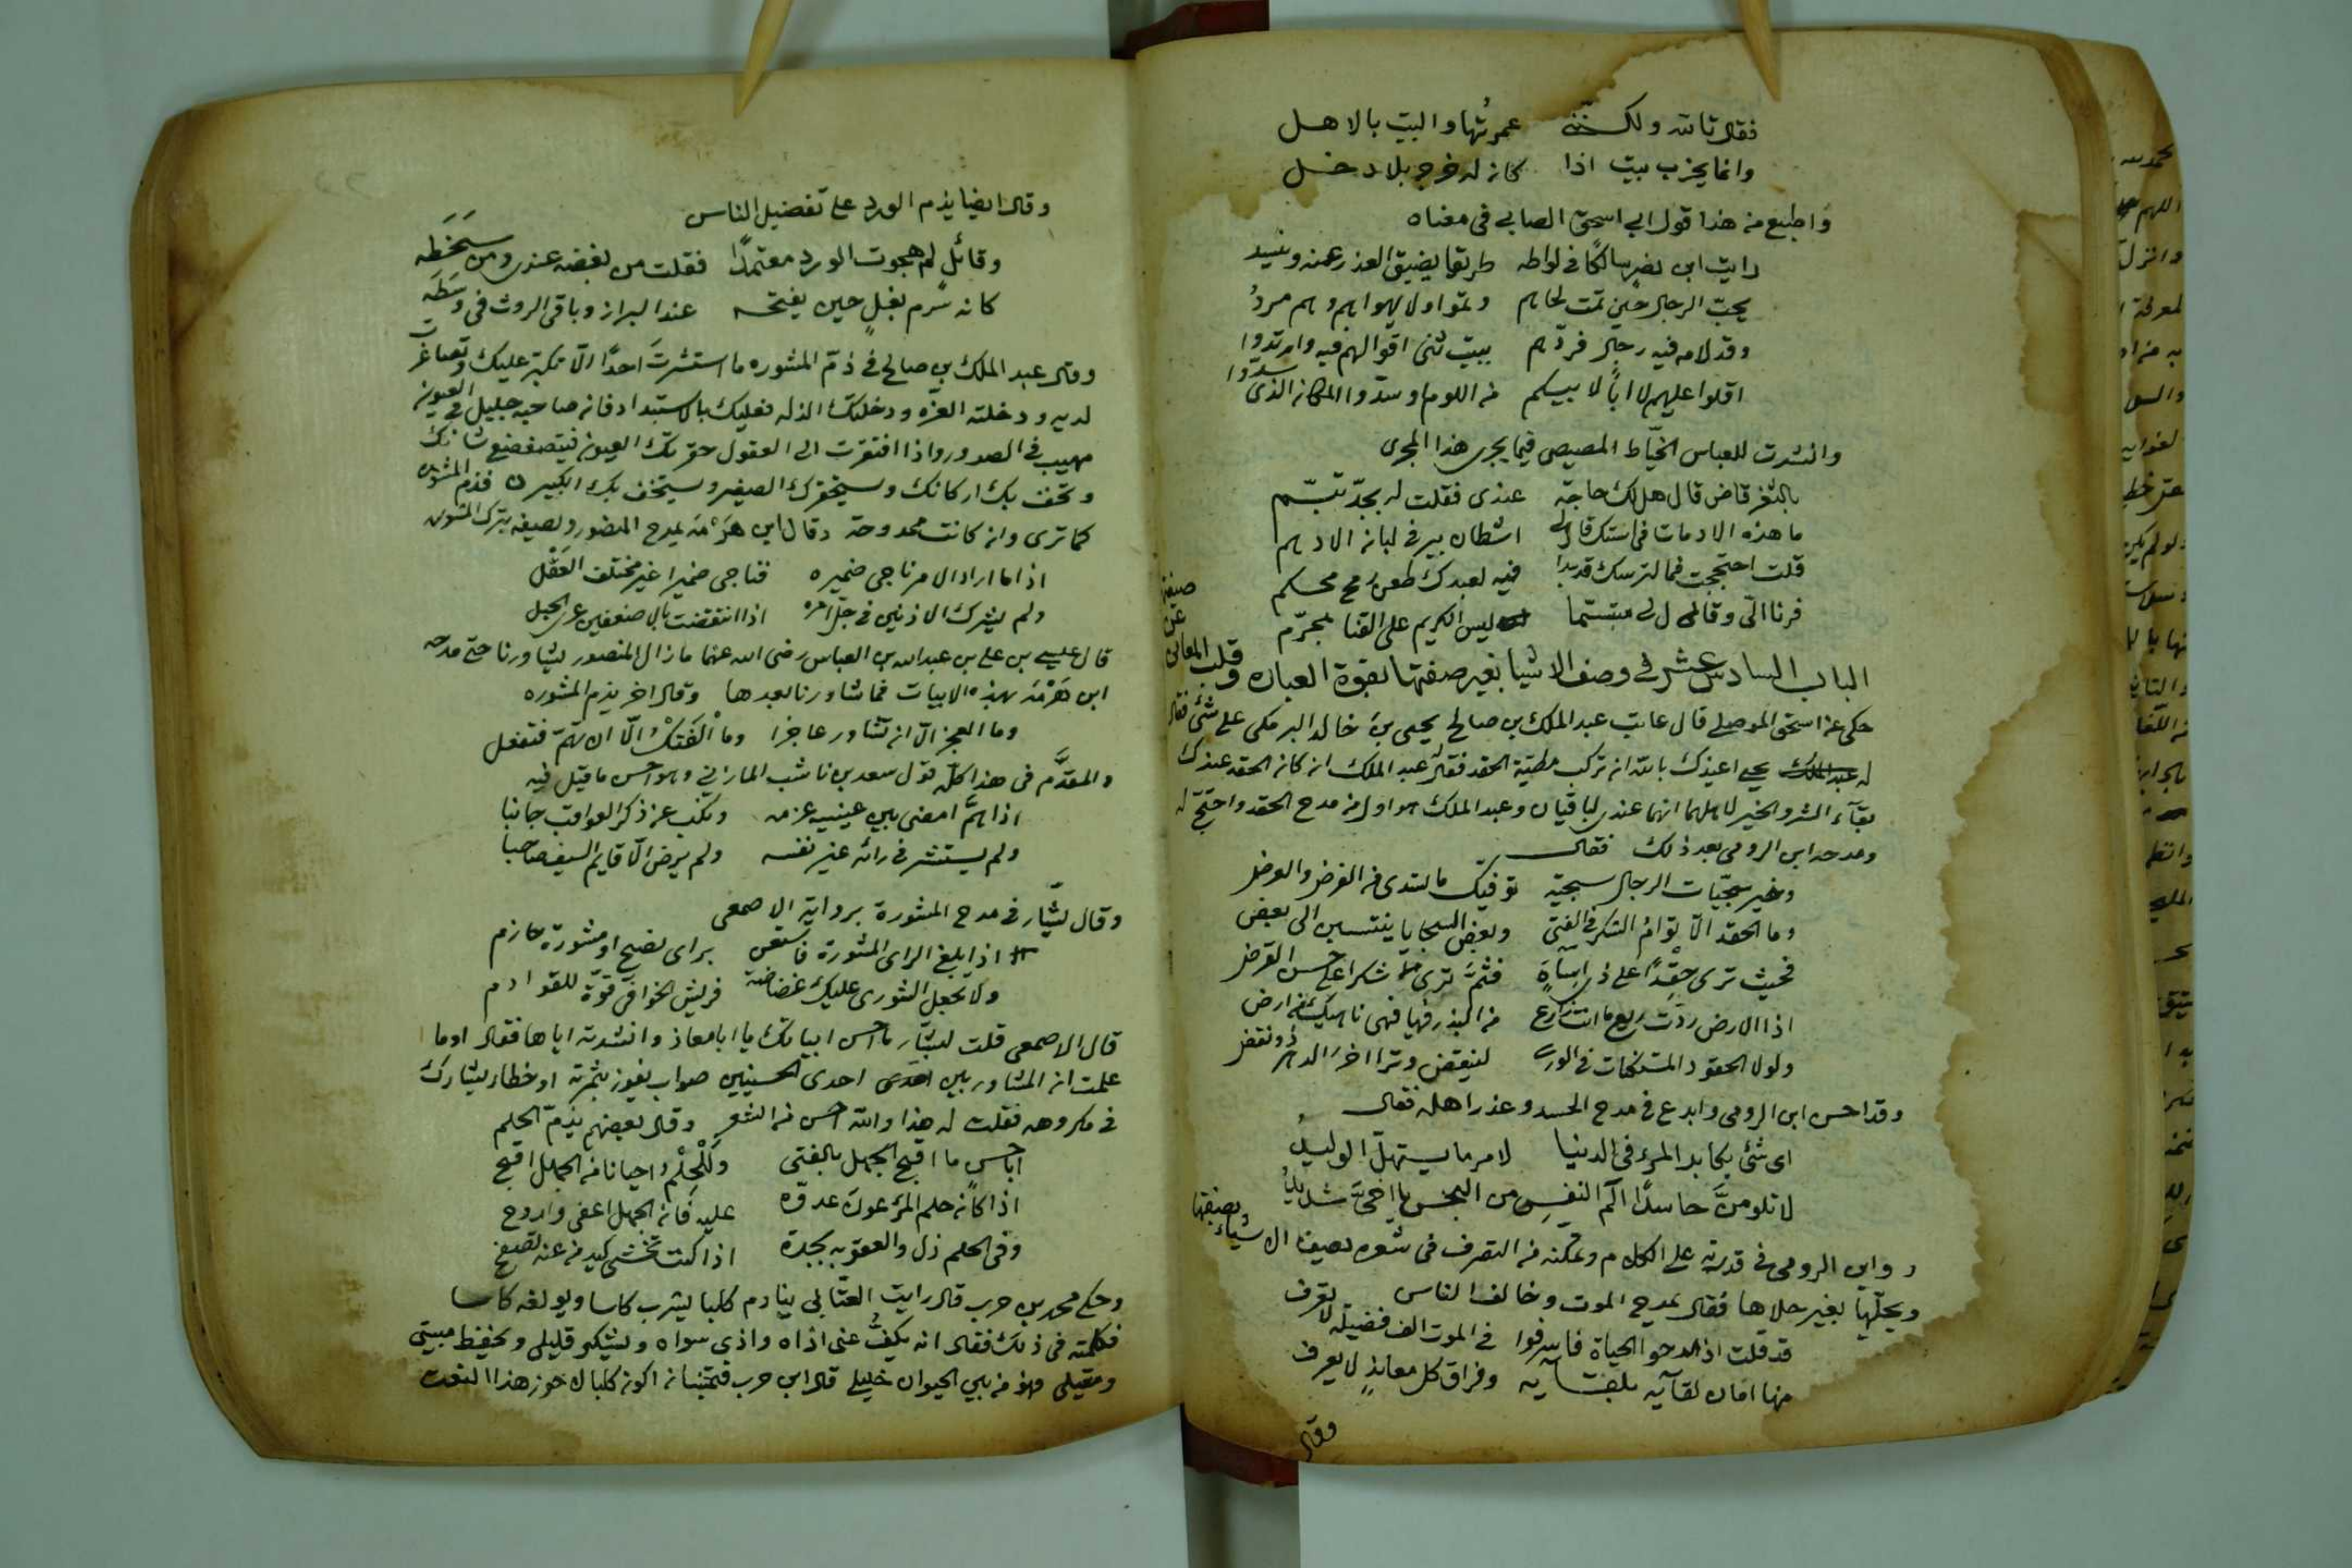 فقال تالله ولكننى عمرتها والبيت بالاهل
وانما يخرب بيت اذا كان له خرج بلا دخل
واطبع من هذا قول ابي اسحق الصابي في معناه
رايت ابن نصر سالكا في لواطه طريقا يضيق العذر عنه وينسد
يحب الرجال حين تمت لحاهم ولا يهواهم وهم مرد
وقد لامه فيه رجال فردهم ببيت ثنى اقوالهم فيه وارتدوا
اقلوا عليهم لا ابا لابيكم من اللوم او سدوا المكان الذى سدوا
وانشدت للعباس الخياط المصيصى فيما يجرى هذا المجرى
بالثغر قاض قال هل لك حاجة عندى فقلت له بجد تبسم
ما هذه الادمات في استك قال لي اشطان بير في لبان الادهم
قلت احتججت فما لترسك قد بدا فيه لعبدك طعن رمح محكم
فرنا الى وقال لى متبسما ليس الكريم على القنا بمحرم
الباب السادس عشر في وصف الاشيا بغير صفتها بقوة العباره وقلب المعانى
حكى عن اسحق الموصلي قال عاتب عبد الملك بن صالح يحيى بن خالد البرمكى على شئ فقال
له يحيى اعيذك بالله ان تركب مطية الحقد فقال عبد الملك ان كان الحقد عندك
بقآء الشر والخير لاهلهما انهما عندى لباقيان وعبد الملك هو اول من مدح الحقد واحتج له
ومدحه ابن الرومى بعد ذلك فقال
وخير سجيات الرجال سجية توفيك ما تسدى من القرض والقرض
وما الحقد الا توام الشكر في الفتى وبعض السجايا ينتسبن الى بعض
فحيث ترى حقدا على ذى اساة فثم ترى شكرا على حسن القرض
اذا الارض ردت ريع ما انت زارع من البذر فيها فهى ناهيك من ارض
ولولا الحقود المستكنات في الورى لينقض وترا اخر الدهر ذو نقض
وقد احسن ابن الرومى وابدع في مدح الحسد وعذر اهله فقال
اى شئ يكابد المرء في الدنيا لامر ما يستهل الوليد
لا تلومن حاسدا الم النفس من البخس يا اخى شديد
وابن الرومى في قدرته على الكلام وتمكنه من التصرف في شعره يصف الاشياء بصفتها
ويحليها بغير حلاها فقال يمدح الموت وخالف الناس
قد قلت اذ مدحوا الحياة فاسرفوا في الموت الف فضيلة لا تعرف
منها امان لقآئه بلقآئه وفراق كل معاند لا يعرف
وقال
وقال ايضا يذم الورد على تفضيل الناس
وقائل لم هجوت الورد معتمدا فقلت من بغضه عندى ومن سخطه
كانه سرم بغل حين يفتحه عند البراز وباقى الروث فى وسطه
وقال عبد الملك بن صالح في ذم المشوره ما استشرت احدا الا تكبر عليك وتصاغرت
لديه ودخلته العزه ودخلتك الذله فعليك بالاستبداد فان صاحبه جليل في العيون
مهيب في الصدور واذا افتقرت الى العقول حقرتك العيون فيتضعضع شانك
وتخف بك اركانك ويستحقرك الصغير ويستخف بك الكبير فذم المشوره
كما ترى وان كانت ممدوحة وقال ابن هرمه يمدح المنصور ويصفه بترك المشوره
اذا ما اراد الامر ناجى ضميره فناجى ضميرا غير مختلف العقل
ولم يشرك الاذنين في جل امره اذا انتقضت بالاضعفين عرى الحبل
قال عيسى بن علي بن عبد الله بن العباس رضى الله عنهما ما زال المنصور يشاورنا حتى مدحه
ابن هرمه بهذه الابيات فما شاورنا بعدها وقال اخر يذم المشوره
وما العجز الا ان تشاور عاجزا وما الفتك الا ان تهم فتفعل
والمقدم فى هذا كله قول سعد بن ناشب المازنى وهو احسن ما قيل فيه
اذا هم امضى بين عينيه عزمه ونكب عن ذكر العواقب جانبا
ولم يستشر في رائه غير نفسه ولم يرض الا قايم السيف صاحبا
وقال بشار في مدح المشورة برواية الاصمعى
اذا بلغ الراى المشورة فاستعن براى نصيح او مشورة حازم
ولا تجعل الشورى عليك غضاضة فريش الخوافى قوة للقوادم
قال الاصمعى قلت لبشار ما احسن ابياتك يا ابا معاذ وانشدته اياها فقال اوما
علمت ان المشاور بين احدى الحسنيين صواب يفوز بثمرته او خطاء يشارك
في مكروهه فقلت له هذا والله احسن من الشعر وقال بعضهم يذم الحلم
ابا حسن ما اقبح الجهل بالفتى وللحلم احيانا من الجهل اقبح
اذا كان حلم المرء عون عدوه عليه فان الجهل اعفى واروح
وفى الحلم ذل والعقوبه نجدة اذا كنت تخشى كيد من عنه تصفح
وحكى محمد بن حرب قال رايت العتابى ينادم كلبا يشرب كاسا ويولغه كاسا
فكلمته فى ذلك فقال انه يكف عنى اذاه واذى سواه ويشكر قليلى ويحفظ مبيتى
ومقيلى فهو من بين الحيوان خليلى قال ابن حرب فتمنيت ان اكون كلبا لاحوز هذا النعت